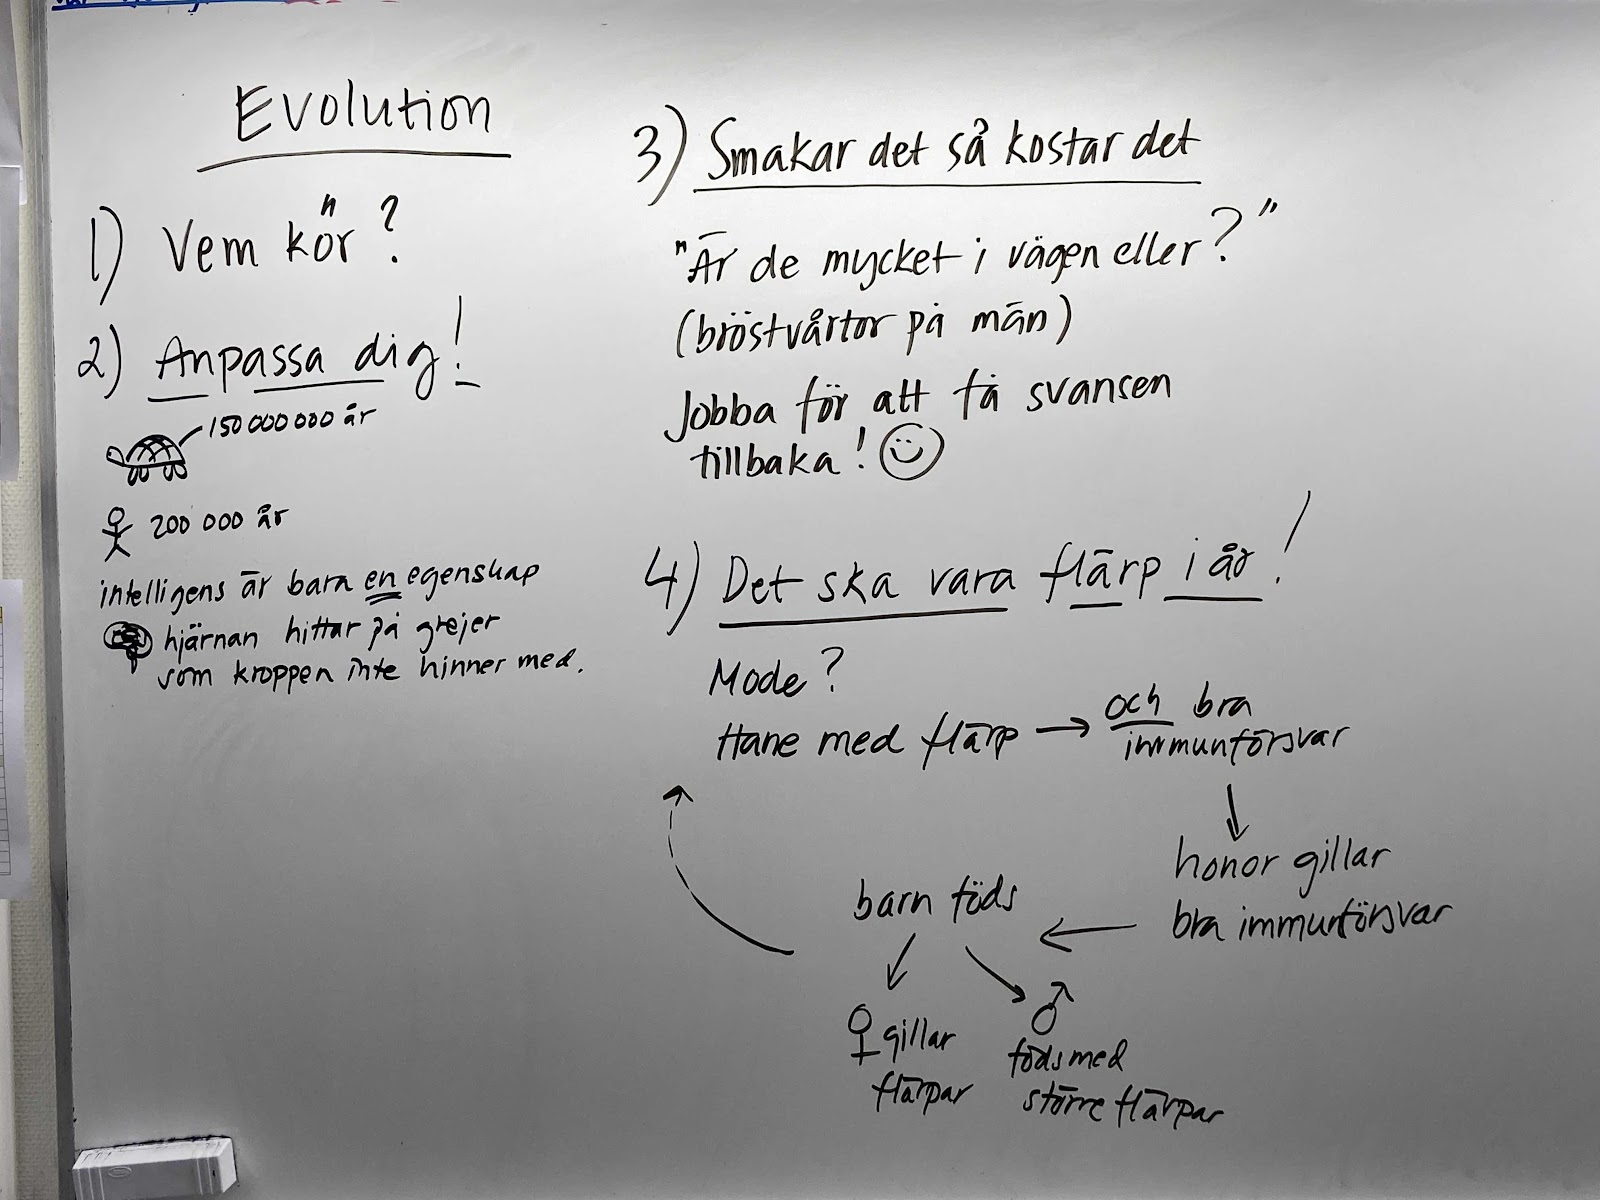 Evolution
1) Vem kör?
2) Anpassa dig!
150 000 000 år
200 000 år
intelligens är bara en egenskap
hjärnan hittar på grejer
som kroppen inte hinner med.
3) Smakar det så kostar det
"Är de mycket i vägen eller?"
(bröstvårtor på män)
Jobba för att få svansen
tillbaka!
4) Det ska vara flärp i år!
Mode?
Hane med flärp → och bra
immunförsvar
honor gillar
bra immunförsvar
barn föds
♀ gillar
flärpar
♂
föds med
större flärpar